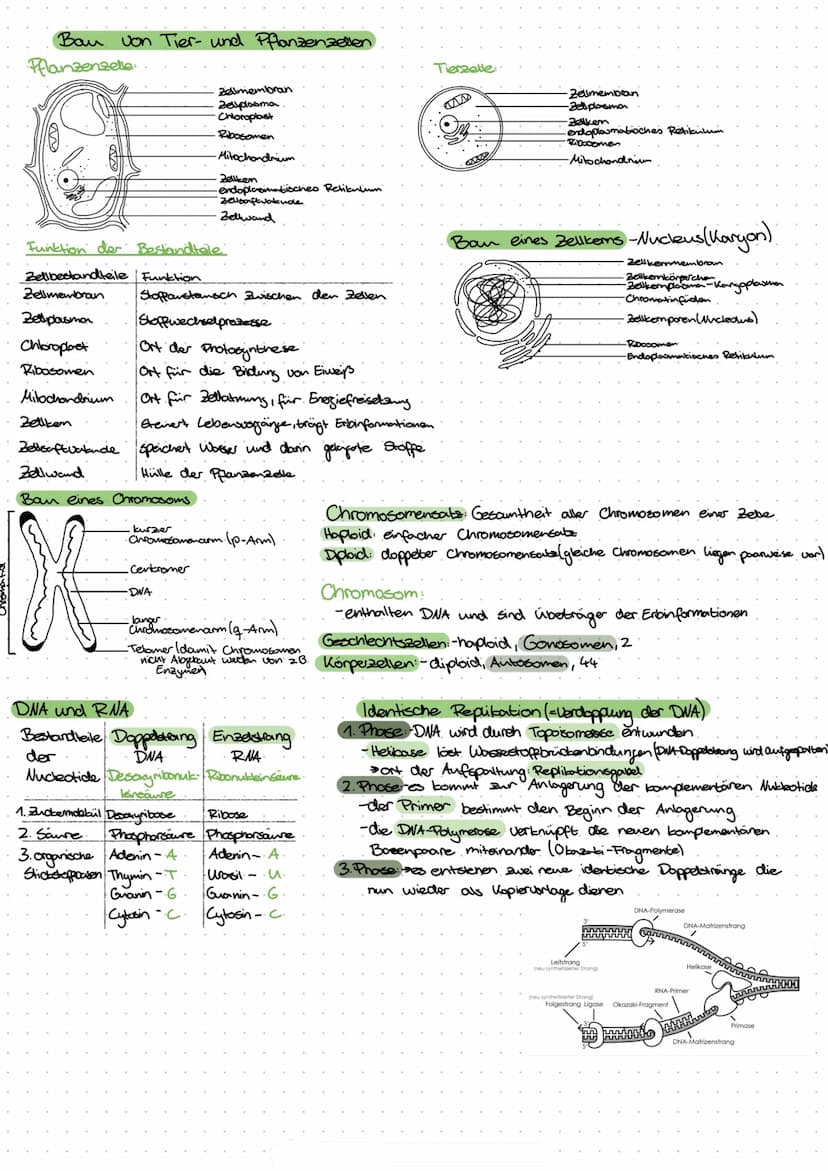 Bau von Tier- und Pflanzenzellen
Pflanzenzelle:
Zellmembran
Zellplasma
Chloroplast
Ribosomen
Mitochondrium
Zellkern
endoplasmatisches Retikulum
Zellsaftvakuole
Zellwand
Tierzelle:
Zellmembran
Zellplasma
Zellkern
endoplasmatisches Retikulum
Ribosomen
Mitochondrium
Funktion der Bestandteile:
Zellbestandteile Funktion
Zellmembran Stoffaustausch zwischen den Zellen
Zellplasma Stoffwechselprozesse
Chloroplast Ort der Photosynthese
Ribosomen Ort für die Bildung von Eiweiß
Mitochondrium Ort für Zellatmung, für Energiefreisetzung
Zellkern steuert Lebensvorgänge, trägt Erbinformationen
Zellsaftvakuole speichert Wasser und darin gelöste Stoffe
Zellwand Hülle der Pflanzenzelle
Bau eines Zellkerns - Nucleus (Karyon)
Zellkernmembran
Zellkernkörperchen
Zellkernplasma - Karyoplasma
Chromatinfäden
Zellkernporen (Nucleolus)
Ribosomen
Endoplasmatisches Retikulum
Bau eines Chromosoms
Chromatid
kurzer
Chromosomenarm (p-Arm)
Centromer
DNA
langer
Chromosomenarm (q-Arm)
Telomer (damit Chromosomen
nicht Abgebaut werden von z.B.
Enzymen)
Chromosomensatz: Gesamtheit aller Chromosomen einer Zelle
Haploid: einfacher Chromosomensatz
Diploid: doppelter Chromosomensatz (gleiche Chromosomen liegen paarweise vor)
Chromosom:
- enthalten DNA und sind Überträger der Erbinformationen
Geschlechtszellen: - haploid, Gonosomen, 2
Körperzellen: - diploid, Autosomen, 44
DNA und RNA
Bestandteile Doppelstrang Einzelstrang
der DNA RNA
Nucleotide Desoxyribonuk- Ribonukleinsäure
leinsäure
1. Zuckermolekül Desoxyribose Ribose
2. Säure Phosphorsäure Phosphorsäure
3. organische Adenin - A Adenin - A
Stickstoffbasen Thymin - T Urasil - U
Guanin - G Guanin - G
Cytosin - C Cytosin - C
Identische Replikation (=Verdopplung der DNA)
1. Phase - DNA wird durch Topoisomerase entwunden
- Helikase löst Wasserstoffbrückenbindungen (DNA-Doppelstrang wird aufgespalten)
→ Ort der Aufspaltung: Replikationsgabel
2. Phase - es kommt zur Anlagerung der komplementären Nukleotide
- der Primer bestimmt den Beginn der Anlagerung
- die DNA-Polymerase verknüpft die neuen komplementären
Basenpaare miteinander (Okazaki-Fragmente)
3. Phase → es entstehen zwei neue identische Doppelstränge die
nun wieder als Kopiervorlage dienen
DNA-Polymerase
DNA-Matrizenstrang
3'
5'
Leitstrang
(neu synthetisierter Strang)
Helikase
RNA-Primer
(neu synthetisierter Strang)
Folgestrang Ligase Okazaki-Fragment
3'
5'
Primase
DNA-Matrizenstrang